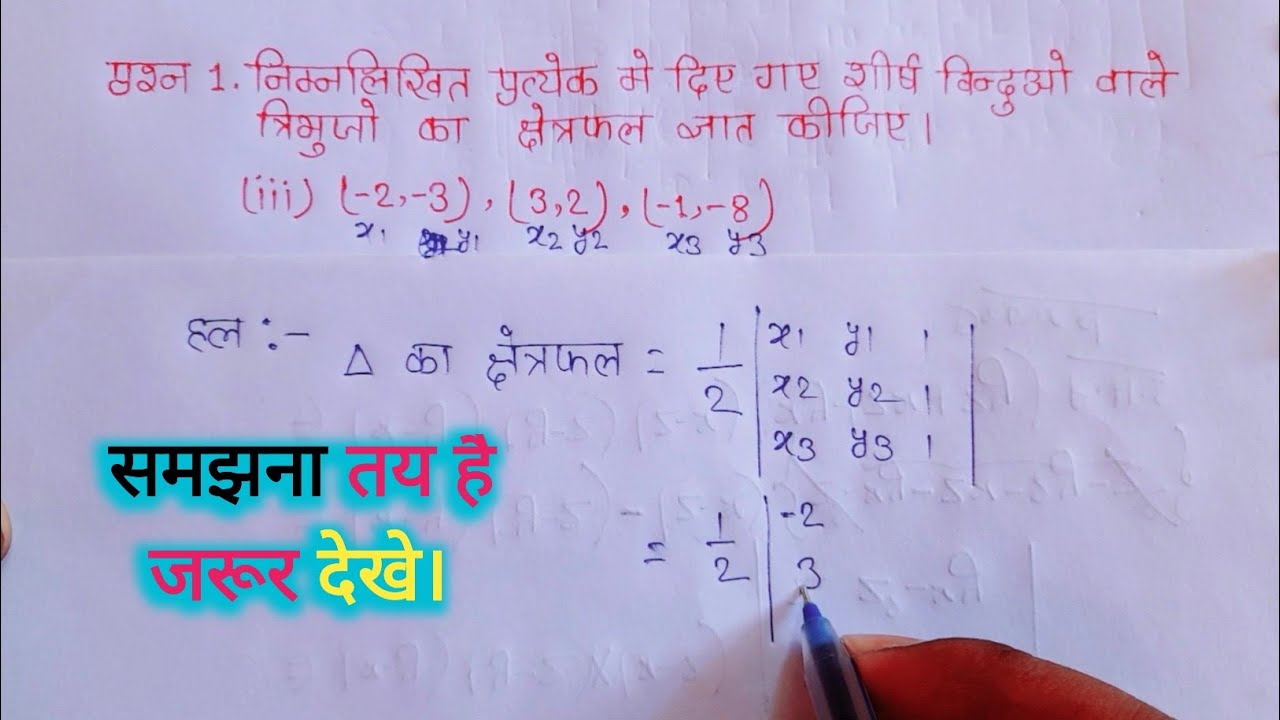 प्रश्न 1. निम्नलिखित प्रत्येक मे दिए गए शीर्ष बिन्दुओ वाले
त्रिभुजो का क्षेत्रफल ज्ञात कीजिए।
(iii) (-2,-3), (3,2), (-1,-8)
x1 y1 x2 y2 x3 y3
हल :- Δ का क्षेत्रफल = 1/2 | x1 y1 1 |
| x2 y2 1 |
| x3 y3 1 |
समझना तय है
जरूर देखे।
= 1/2 | -2
3